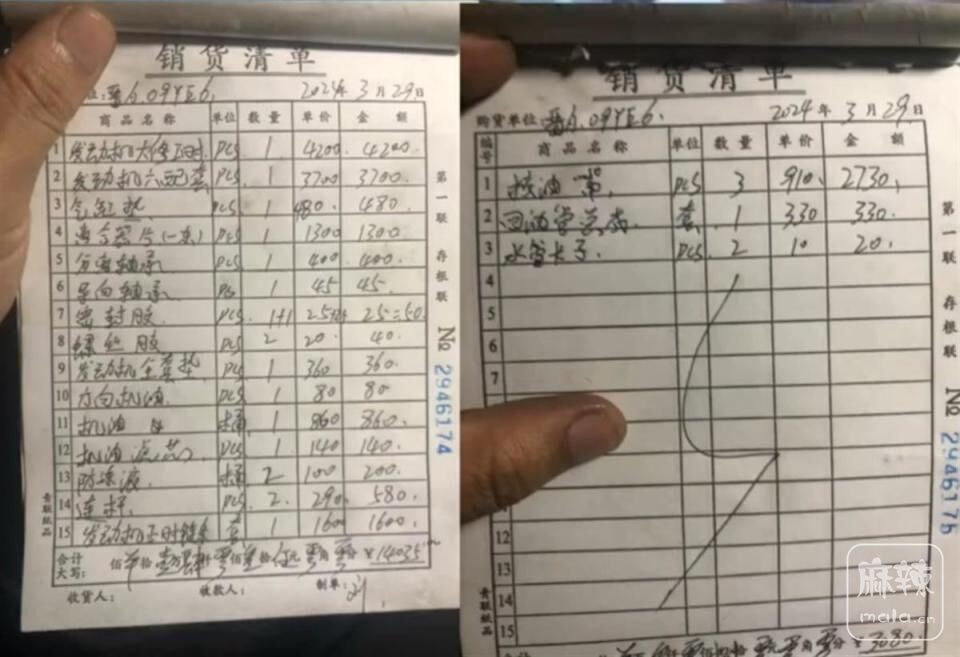 销货清单
晋A.09YE6. 2024年3月29日
商品名称 单位 数量 单价 金额
1 发动机大修工时. PCS 1 4200. 4200.
2 发动机六配套 PCS 1 3700 3700.
3 气缸垫. PCS. 1 480. 480.
4 离合器片(一套) PCS 1 1300 1300
5 分离轴承 PCS 1 400. 400.
6 导向轴承 PCS 1 45 45.
7 密封胶. PCS. 1+1 25+25 25=50.
8 螺丝胶 PCS 2 20. 40.
9 发动机全套垫. PCS 1 360 360.
10 方向机油 PCS 1 80 80
11 机油 桶 1 860 860.
12 机油滤芯 PCS 1 140 140.
13 防冻液. 桶 2 100 200.
14 连杆. PCS 2. 290. 580.
15 发动机正时链条 套 1 1600 1600.
合计
大写: 佰 拾 万 仟 佰 拾 元 角 分 ¥14035
收货人: 收款人: 制单:
第一联 存根联
№ 2946174
青联纸品
销货清单
购货单位:晋A.09YE6. 2024年3月29日
编号 商品名称 单位 数量 单价 金额
1 PCS 3 910. 2730.
2 回油管总成 套. 1 330 330.
3 水管卡子. PCS. 2 10 20.
4
5
6
7
12
13
14
15
¥3080.
第一联 存根联
№ 2946175
青联纸品
麻辣
mala.cn